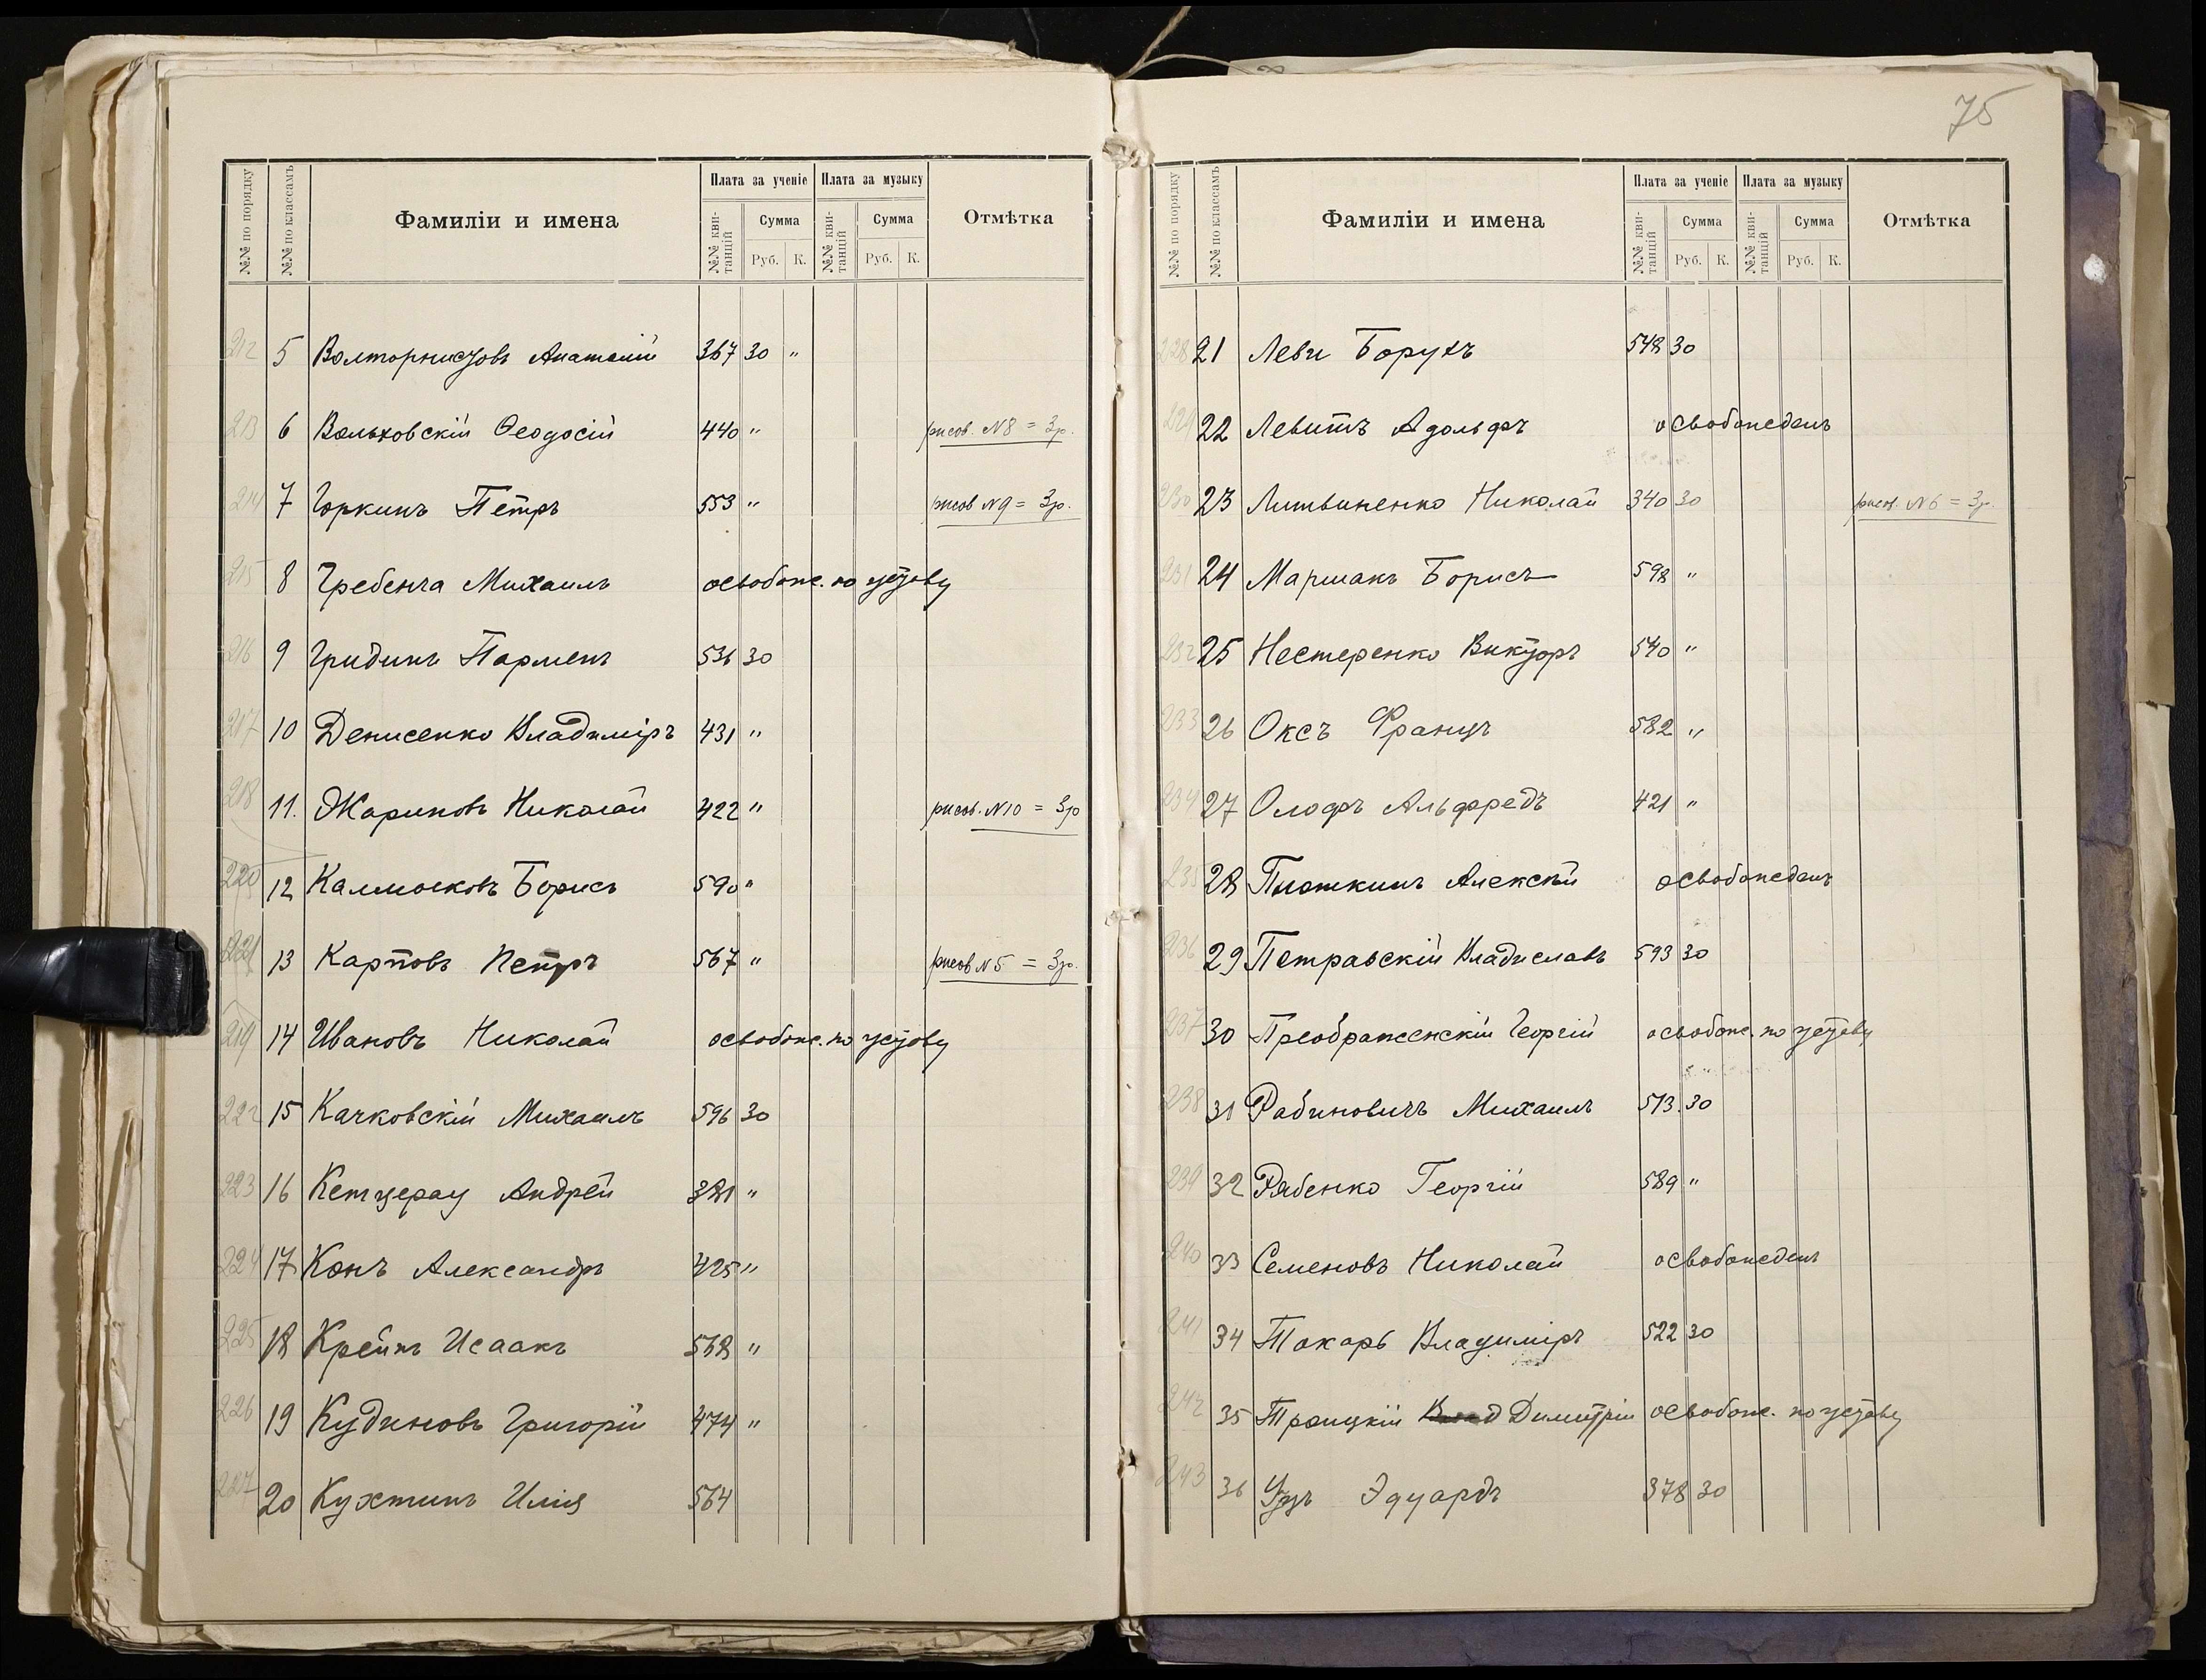 75
№№ по порядку №№ по классамъ Фамиліи и имена Плата за ученіе Плата за музыку Отмѣтка
№№ квитанцій Сумма №№ квитанцій Сумма
Руб. К. Руб. К.
212 5 Волторнистовъ Анатолій 367 30 "
213 6 Вольховскій Ѳеодосій 440 " рисов. №8 = 3р.
214 7 Горкинъ Петръ 553 " рисов №9 = 3р.
215 8 Гребенча Михаилъ освобожд. по уставу
216 9 Гридинъ Парменъ 536 30
217 10 Денисенко Владиміръ 431 "
218 11. Жариновъ Николай 422 " рисов. №10 = 3р
220 12 Калмыковъ Борисъ 590 "
221 13 Карповъ Петръ 567 " рисов №5 = 3р.
219 14 Ивановъ Николай освобожд. по уставу
222 15 Качковскій Михаилъ 596 30
223 16 Кетцерау Андрей "
224 17 Конъ Александръ 425 "
225 18 Исаакъ 568 "
226 19 Кудиновъ Григорій 474 "
227 20 Кухтинъ Илія 564
№№ по порядку №№ по классамъ Фамиліи и имена Плата за ученіе Плата за музыку Отмѣтка
№№ квитанцій Сумма №№ квитанцій Сумма
Руб. К. Руб. К.
228 21 Леви Борухъ 548 30
229 22 Левитъ Адольфъ освобожденъ
230 23 Литвиненко Николай 340 30 рисов. №6 = 3р.
231 24 Маршакъ Борисъ 598 "
232 25 Нестеренко Викторъ 540 "
233 26 Оксъ Францъ 582 "
234 27 Олофъ Альфредъ 421 "
235 28 Плоткинъ Алексѣй освобожденъ
236 29 Петравскій Владиславъ 593 30
237 30 Преображенскій Георгій освобожд. по уставу
238 31 Рабиновичъ Михаилъ 513 30
239 32 Рябенко Георгій 589 "
240 33 Семеновъ Николай освобожденъ
241 34 Токарь Владиміръ 522 30
242 35 Троицкій Димитрій освобожд. по уставу
243 36 Эдуардъ 378 30